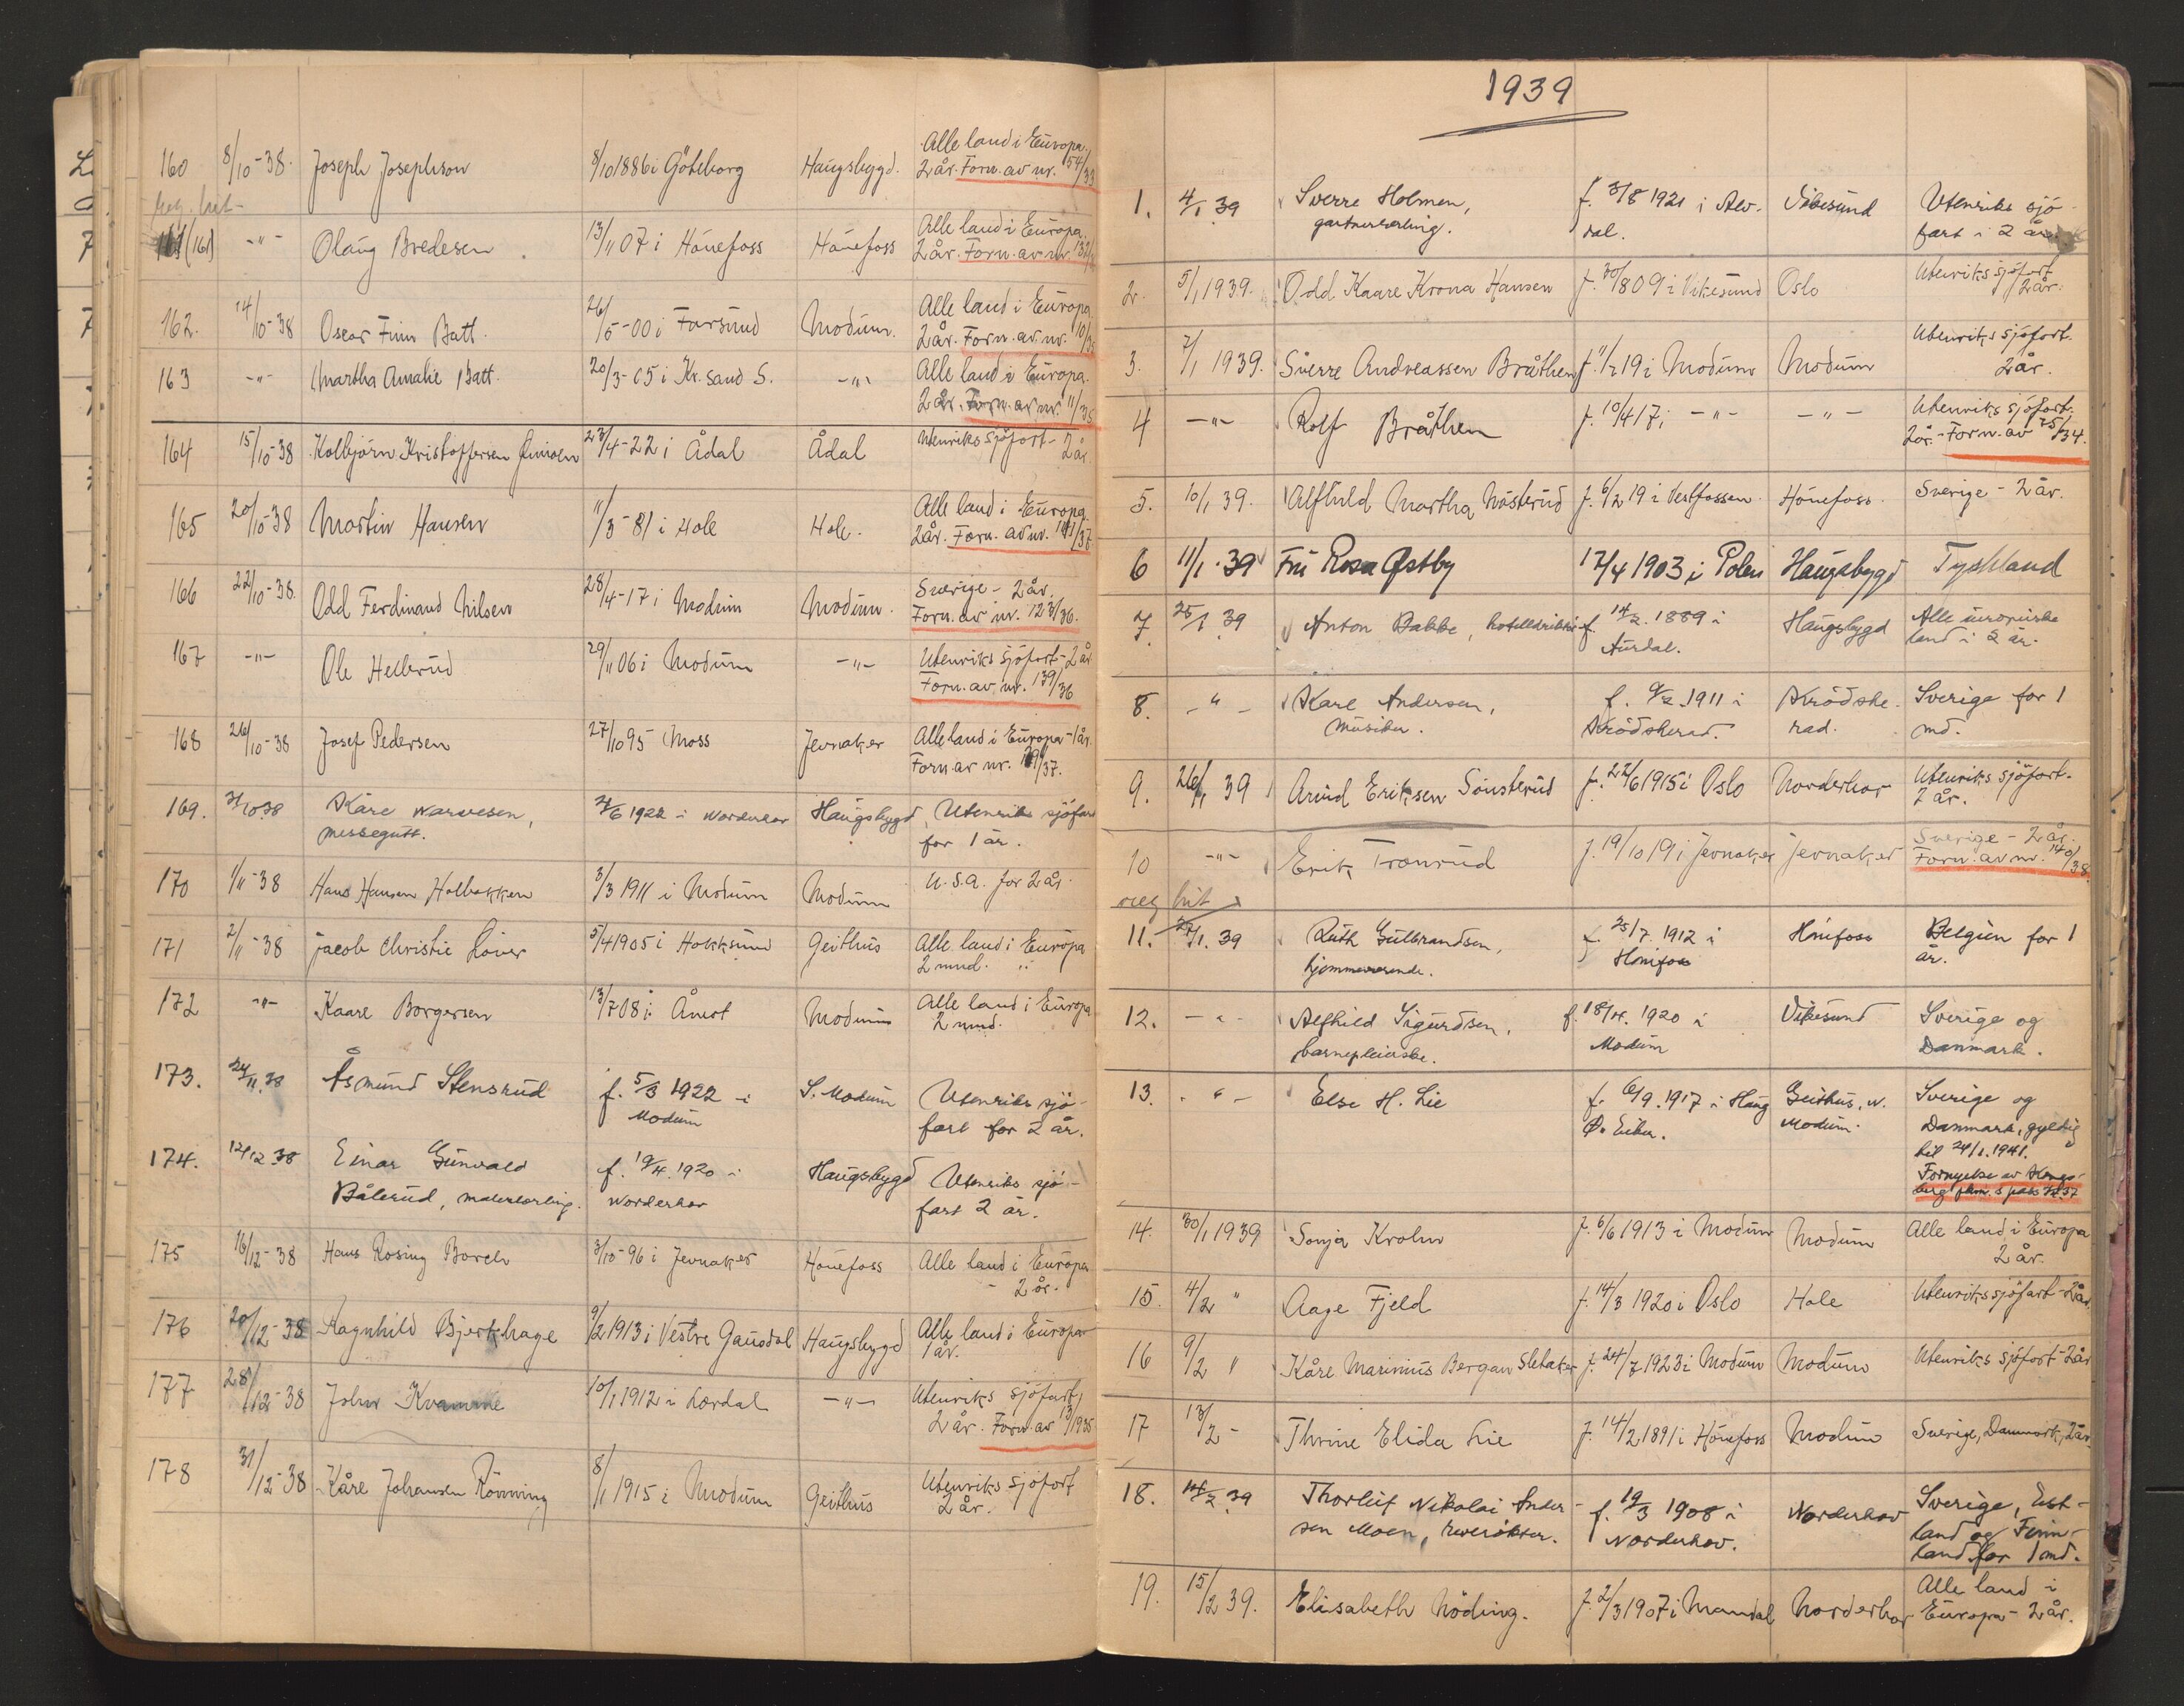 160 8/10-38. Joseph Josephson 8/10 1886 i Göteborg Haugsbygd. Alle land i Europa.
2 år. Forn. av nr. 54/33
161 (161) -"- Olaug Bredesen 13/11 07 i Hönefoss Hönefoss Alle land i Europa.
2 år. Forn. av nr.
162. 14/10-38 Oscar Finn Batt. 26/5-00 i Farsund Modum. Alle land i Europa.
2 år. Forn. av nr. 10/35
163 -"- Martha Amalie Batt. 20/3-05 i Kr. sand S. -"- Alle land i Europa.
2 år. Forn. av nr. 11/35
164 15/10-38 Kolbjörn Kristoffersen 23/4-22 i Ådal Ådal Utenriks sjöfart -
2 år.
165 20/10-38 Martin Hansen 11/3-81 i Hole Hole. Alle land i Europa.
2 år. Forn. av nr. 141/37.
166 22/10-38. Odd Ferdinand Nilsen 28/4-17 i Modum Modum. Sverige - 2 år.
Forn. av nr. 123/36.
167 -"- Ole Hellerud 29/11 06 i Modum -"- Utenriks sjöfart - 2 år
Forn. av nr. 139/36
168 26/10-38 Josef Pedersen 27/10 95 i Moss Jevnaker Alle land i Europa - 1 år.
Forn. av nr. /37.
169. 31/10 38 Kåre Narvesen, 4/6 1922 i Norderhov Haugsbygd, Utenriks sjöfart
messegutt. for 1 år.
170 1/11-38 Hans Hansen Holbakken 3/3 1911 i Modum Modum U.S.A. for 2 år.
171 2/11-38 Jacob Christie Löver 5/4 1905 i Hokksund Geithus Alle land i Europa
2 mnd.
172 -"- Kaare Borgersen 13/7 08 i Åmot Modum Alle land i Europa
2 mnd.
173. 24/11.38 Åsmund Stensrud f. 5/3 1922 i S. Modum Utenriks sjö-
Modum fart for 2 år.
174. 12/12 38 Einar Gunvald f. 19/4.1920 i Haugsbygd Utenriks sjö-
Bålerud, malerlærling. Norderhov fart 2 år.
175 16/12-38 Hans Rosing Borch 3/10-96 i Jevnaker Hönefoss Alle land i Europa
- 2 år.
176 20/12-38 Ragnhild Bjerkhage 9/2 1913 i Vestre Gausdal Haugsbygd Alle land i Europa
1 år.
177 28/12-38 John Kvamme 10/1 1912 i Lærdal -"- Utenriks sjöfart,
2 år. Forn. av 13/1935
178 31/12-38 Kåre Johansen Rönning 8/1 1915 i Modum Geithus Utenriks sjöfart
2 år.
1939
1. 4/1 39 Sverre Holmen, f. 3/8 1921 i Alv- Vikesund Utenriks sjö-
gartnerlærling. dal. fart i 2 år.
2. 5/1 1939. Odd Kaare Krona Hansen f. 30/8 09 i Vikesund Oslo Utenriks sjöfart
2 år.
3. 7/1 1939. Sverre Andreassen Bråthen f. 11/2 19 i Modum Modum Utenriks sjöfart.
2 år.
4 -"- Rolf Bråthen f. 10/4 17 i -"- -"- Utenriks sjöfart.
2 år. - Forn. av 75/34.
5. 10/1 39. Alfhild Martha Nösterud f. 6/2 19 i Vestfossen Hönefoss. Sverige - 2 år.
6 11/1.39 Fru Rosa Østby 17/4 1903 i Polen Haugsbygd Tyskland
7. 25/1 39 Anton Bakke, f. 14/2.1889 i Haugsbygd Alle europeiske
Aurdal. land i 2 år.
8. -"- Kåre Andersen, f. 9/2.1911 i Krödshe- Sverige for 1
musiker. Krödsherad. rad. md.
9. 26/1 39 Arvid Eriksen Sönsterud f. 22/6 1915 i Oslo Norderhov Utenriks sjöfart.
2 år.
10 -"- Erik Tronrud f. 19/10 19 i Jevnaker Jevnaker Sverige - 2 år.
Forn. av nr. 140/38.
11. 27/1.39 Ruth Gulbrandsen, f. 25/7.1912 i Hönefoss Belgien for 1
hjemmeværende. Hönefoss år.
12. -"- Alfhild Sigurdsen, f. 18/4.1920 i Vikesund Sverige og
barnepleierske. Modum Danmark.
13. -"- Else H. Lie f. 6/9.1917 i Haug Geithus, N. Sverige og
Ø. Eiker. Modum. Danmark, gyldig
til 24/1.1941.
Fornyelse av Kongs-
berg pkm.s pass
14. 30/1 1939 Sonja Krohn f. 6/6 1913 i Modum Modum Alle land i Europa
2 år.
15. 4/2 " Aage Fjeld f. 14/3 1920 i Oslo Hole Utenriks sjöfart - 2 år.
16 9/2 " Kåre Marinius Bergan Sletaker f. 24/7 1923 i Modum Modum Utenriks sjöfart - 2 år
17 13/2 - Thrine Elida Lie f. 14/2 1891 i Hönefoss Modum Sverige, Danmark, 2 år.
18. 14/2 39 Thorleif Nikolai Ander- f. 19/3 1908 i Norderhov Sverige, Est-
sen Moen, Norderhov. land og Finn-
land for 1 md.
19. 15/2 39. Elisabeth Nöding. f. 2/3 1907 i Mandal Norderhov Alle land i
Europa - 2 år.